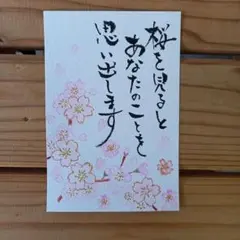 桜を見ると
あなたのことを
思い出します